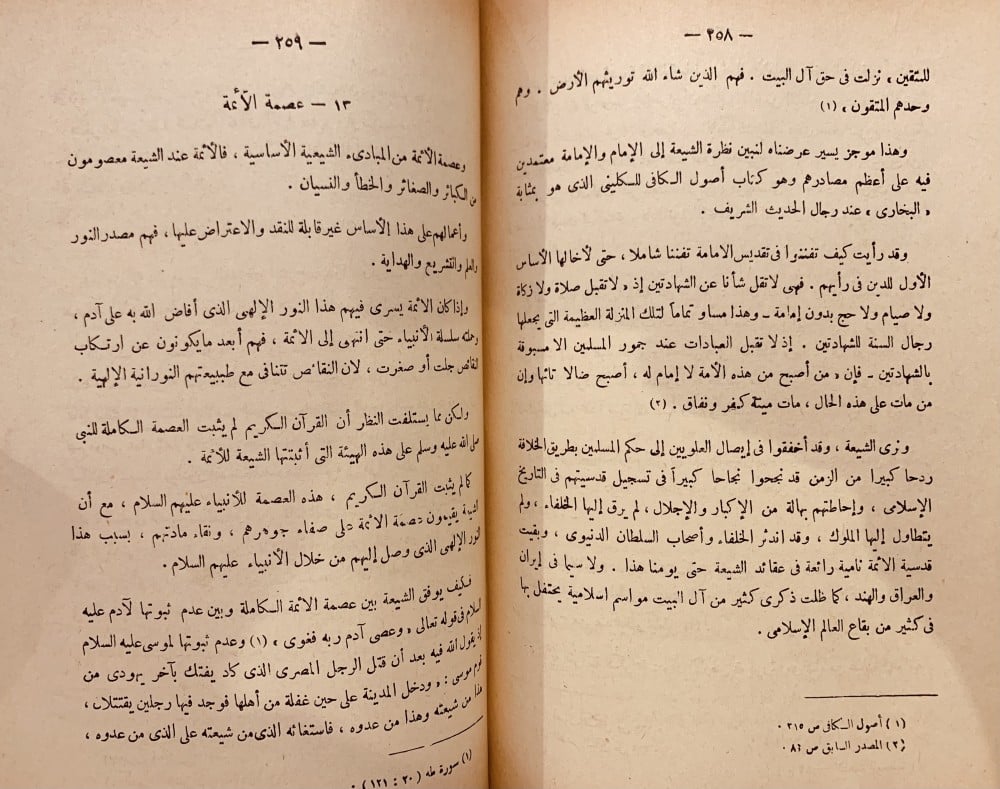 — ٢٥٨ —
للمتقين » نزلت فى حق آل البيت . فهم الذين شاء الله توريثهم الأرض . وهم
وحدهم المتقون » (١)
وهذا موجز يسير عرضناه لنبين نظرة الشيعة إلى الإمام والإمامة معتمدين
فيه على أعظم مصادرهم وهو كتاب أصول الكافى للكلينى الذى هو بمثابة
« البخارى » عند رجال الحديث الشريف .
وقد رأيت كيف تفننوا فى تقديس الامامة تفننا شاملا ، حتى لأخالها الأساس
الأول للدين فى رأيهم . فهى لاتقل شأنا عن الشهادتين إذ « لاتقبل صلاة ولا زكاة
ولا صيام ولا حج بدون إمامة ـ وهذا مساو تماماً لتلك المنزلة العظيمة التى يجعلها
رجال السنة للشهادتين . إذ لا تقبل العبادات عند جمهور المسلمين الا مسبوقة
بالشهادتين ـ فإن « من أصبح من هذه الأمة لا إمام له ، أصبح ضالا تائها وإن
من مات على هذه الحال ، مات ميتة كفر ونفاق . (٢)
ونرى الشيعة ، وقد أخفقوا فى إيصال العلويين إلى حكم المسلمين بطريق الخلافة
ردحا كبيرا من الزمن قد نجحوا نجاحا كبيراً فى تسجيل قدسيتهم فى التاريخ
الإسلامى ، وإحاطتهم بهالة من الإكبار والإجلال ، لم يرق إليها الخلفاء ، ولم
يتطاول إليها الملوك ، وقد اندثر الخلفاء وأصحاب السلطان الدنيوى ، وبقيت
قدسية الأئمة نامية رائعة فى عقائد الشيعة حتى يومنا هذا . ولا سيما فى إيران
والعراق والهند ، كما ظلت ذكرى كثير من آل البيت مواسم اسلامية يحتفل بها
فى كثير من بقاع العالم الإسلامى .
(١) أصول الكافى ص ٢١٥ .
(٢) المصدر السابق ص ٨٤ .
— ٢٥٩ —
١٣ – عصمة الأئمة
وعصمة الأئمة من المبادىء الشيعية الأساسية ، فالأئمة عند الشيعة معصومون
من الكبائر والصغائر والخطأ والنسيان .
وأعمالهم على هذا الأساس غير قابلة للنقد والاعتراض عليها ، فهم مصدر النور
والعلم والتشريع والهداية .
وإذا كان الائمة يسرى فيهم هذا النور الإلهى الذى أفاض الله به على آدم ،
وحملته سلسلة الأنبياء حتى انتهى إلى الائمة ، فهم أبعد مايكونون عن ارتكاب
النقائص جلت أو صغرت ، لان النقائص تتنافى مع طبيعتهم النورانية الإلهية .
ولكن مما يستلفت النظر أن القرآن الكريم لم يثبت العصمة الكاملة للنبى
صلى الله عليه وسلم على هذه الهيئة التى أثبتتها الشيعة للأئمة .
كالم يثبت القرآن الكريم ، هذه العصمة للأنبياء عليهم السلام ، مع أن
الشيعة يقيمون عصمة الائمة على صفاء جوهرهم ، ونقاء مادتهم ، بسبب هذا
النور الإلهى الذى وصل إليهم من خلال الأنبياء عليهم السلام .
فكيف يوفق الشيعة بين عصمة الائمة الكاملة وبين عدم ثبوتها لآدم عليه
السلام فى قوله تعالى « وعصى آدم ربه فغوى » (١) وعدم ثبوتها لموسى عليه السلام
إذ يقول الله فيه بعد أن قتل الرجل المصرى الذى كاد يفتك بآخر يهودى من
قوم موسى : « ودخل المدينة على حين غفلة من أهلها فوجد فيها رجلين يقتتلان ،
هذا من شيعته وهذا من عدوه ، فاستغاثه الذى من شيعته على الذى من عدوه ،
(١) سورة طه ( ٢٠ : ١٢١ ) .